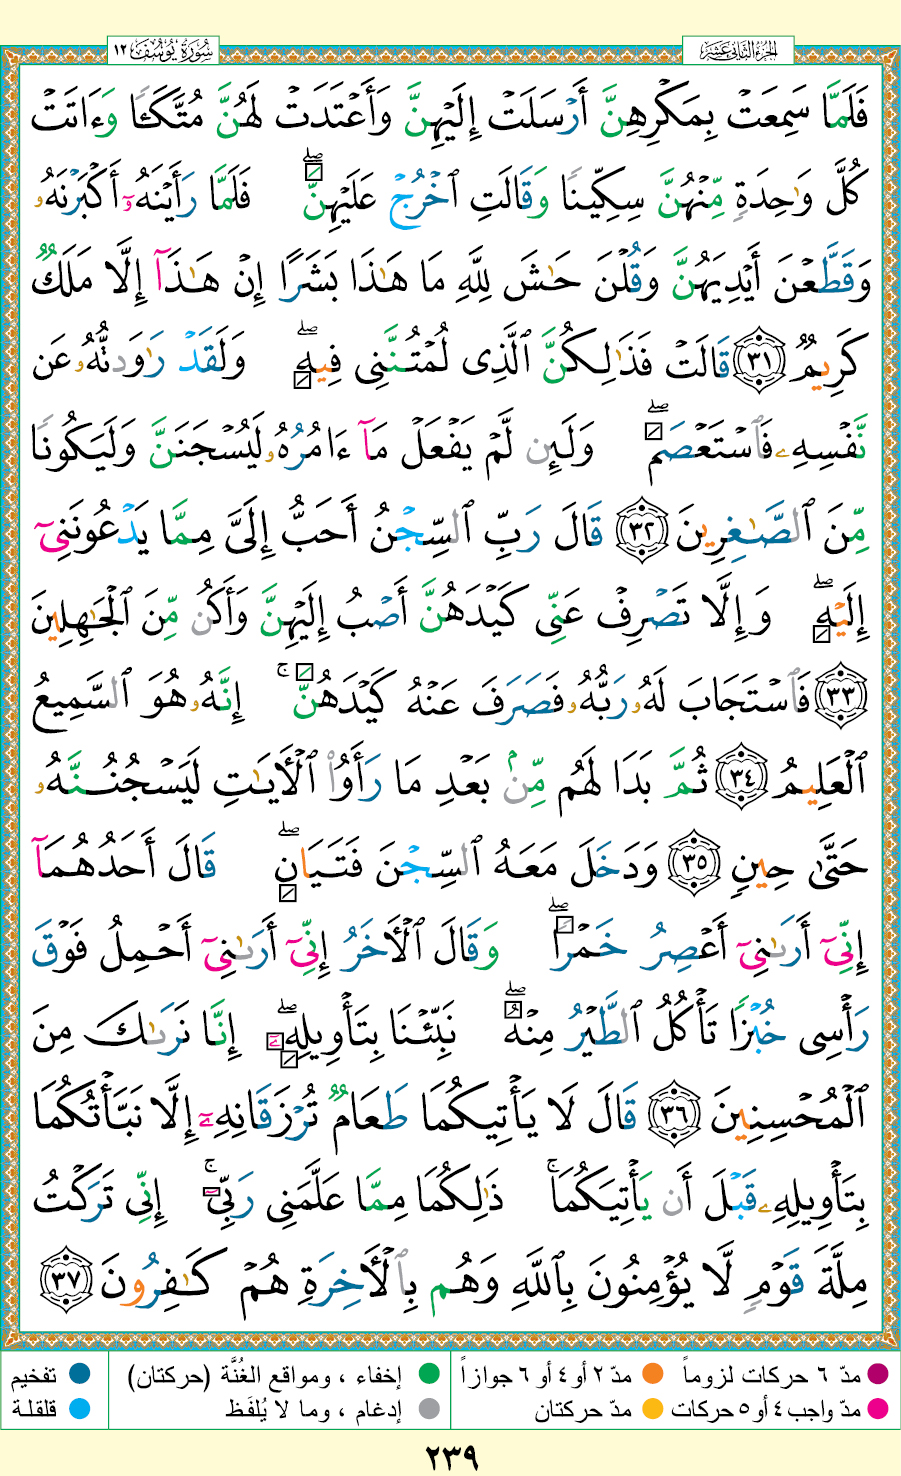 الجزء الثاني عشر
سورة يوسف ١٢
فَلَمَّا سَمِعَتْ بِمَكْرِهِنَّ أَرْسَلَتْ إِلَيْهِنَّ وَأَعْتَدَتْ لَهُنَّ مُتَّكَـًٔا وَءَاتَتْ
كُلَّ وَٰحِدَةٍ مِّنْهُنَّ سِكِّينًا وَقَالَتِ ٱخْرُجْ عَلَيْهِنَّ ۖ فَلَمَّا رَأَيْنَهُۥٓ أَكْبَرْنَهُۥ
وَقَطَّعْنَ أَيْدِيَهُنَّ وَقُلْنَ حَٰشَ لِلَّهِ مَا هَٰذَا بَشَرًا إِنْ هَٰذَآ إِلَّا مَلَكٌ
كَرِيمٌ ٣١ قَالَتْ فَذَٰلِكُنَّ ٱلَّذِى لُمْتُنَّنِى فِيهِ ۖ وَلَقَدْ رَٰوَدتُّهُۥ عَن
نَّفْسِهِۦ فَٱسْتَعْصَمَ ۖ وَلَئِن لَّمْ يَفْعَلْ مَآ ءَامُرُهُۥ لَيُسْجَنَنَّ وَلَيَكُونًا
مِّنَ ٱلصَّٰغِرِينَ ٣٢ قَالَ رَبِّ ٱلسِّجْنُ أَحَبُّ إِلَىَّ مِمَّا يَدْعُونَنِىٓ
إِلَيْهِ ۖ وَإِلَّا تَصْرِفْ عَنِّى كَيْدَهُنَّ أَصْبُ إِلَيْهِنَّ وَأَكُن مِّنَ ٱلْجَٰهِلِينَ
٣٣ فَٱسْتَجَابَ لَهُۥ رَبُّهُۥ فَصَرَفَ عَنْهُ كَيْدَهُنَّ ۚ إِنَّهُۥ هُوَ ٱلسَّمِيعُ
ٱلْعَلِيمُ ٣٤ ثُمَّ بَدَا لَهُم مِّنۢ بَعْدِ مَا رَأَوُا۟ ٱلْـَٔايَٰتِ لَيَسْجُنُنَّهُۥ
حَتَّىٰ حِينٍ ٣٥ وَدَخَلَ مَعَهُ ٱلسِّجْنَ فَتَيَانِ ۖ قَالَ أَحَدُهُمَآ
إِنِّىٓ أَرَىٰنِىٓ أَعْصِرُ خَمْرًا ۖ وَقَالَ ٱلْـَٔاخَرُ إِنِّىٓ أَرَىٰنِىٓ أَحْمِلُ فَوْقَ
رَأْسِى خُبْزًا تَأْكُلُ ٱلطَّيْرُ مِنْهُ ۖ نَبِّئْنَا بِتَأْوِيلِهِۦٓ ۖ إِنَّا نَرَىٰكَ مِنَ
ٱلْمُحْسِنِينَ ٣٦ قَالَ لَا يَأْتِيكُمَا طَعَامٌ تُرْزَقَانِهِۦٓ إِلَّا نَبَّأْتُكُمَا
بِتَأْوِيلِهِۦ قَبْلَ أَن يَأْتِيَكُمَا ۚ ذَٰلِكُمَا مِمَّا عَلَّمَنِى رَبِّىٓ ۚ إِنِّى تَرَكْتُ
مِلَّةَ قَوْمٍ لَّا يُؤْمِنُونَ بِٱللَّهِ وَهُم بِٱلْـَٔاخِرَةِ هُمْ كَٰفِرُونَ ٣٧
مدّ ٦ حركات لزوماً مدّ ٢ أو ٤ أو ٦ جوازاً إخفاء ، ومواقع الغُنَّة (حركتان) تفخيم
مدّ واجب ٤ أو ٥ حركات مدّ حركتان إدغام ، وما لا يُلفَظ قلقلة
٢٣٩